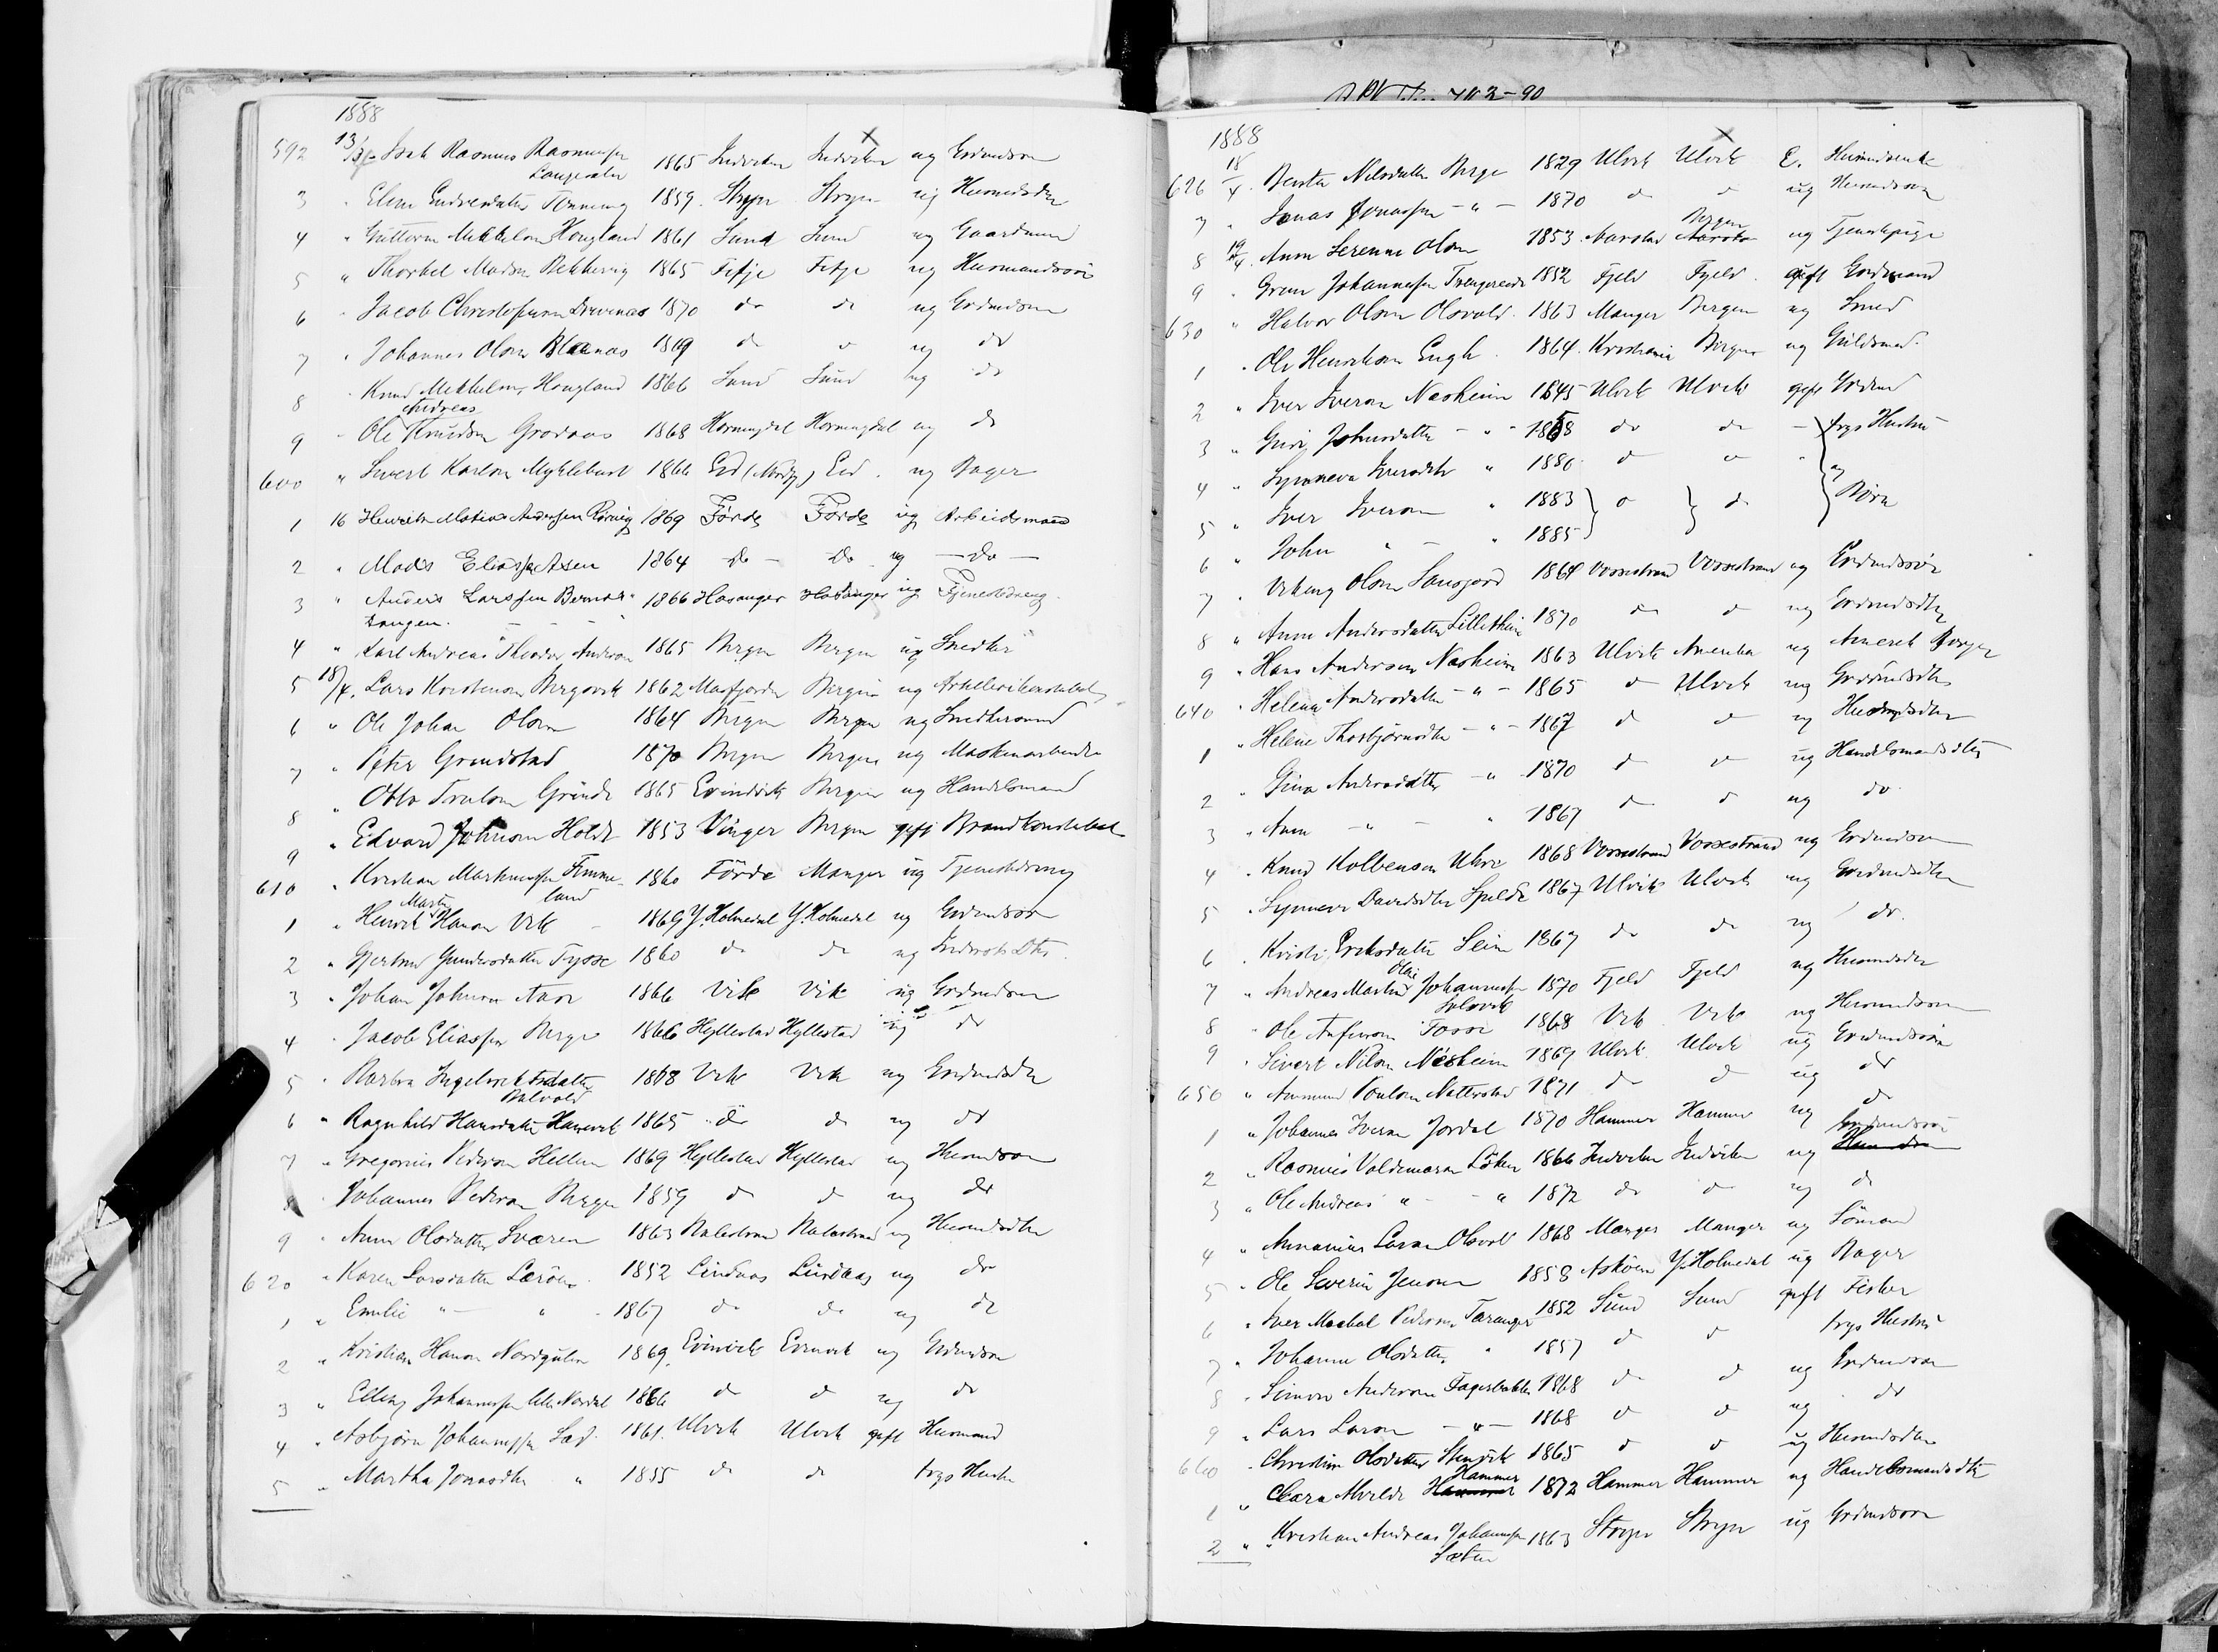 1888
592 13/ Isak Rasmus Rasmussen 1865 Indviken Indviken ug Grdmdsøn
3 " Elen Endresdatter 1859 Stryn Stryn ug Husmdsdtr
4 " Guttorm Mikkelsen Hougland 1861 Sund Sund ug Gaardmand
5 " Thorkel Madsen Bekkervig 1865 Fitje Fitje ug Husmandssøn
6 " Jacob Christophersen Drevenes 1870 do do ug Grdmdsøn
7 " Johannes Olsen 1869 do do ug do
8 " Knud Mikkelsen Hougland 1866 Sund Sund ug do
Andreas
9 " Ole Knudsen Grodaas 1868 Horningdal Horningdal ug do
600 " Sivert Karlsen Myklebust 1866 Eid (Nordfj) Eid ug Bager
1 16 Henrik Mathias Andersen 1869 Førde Førde ug Arbeidsmand
2 " Mads Eliassen Aasen 1864 - Do - - Do ug - do -
3 " Anders Larssen 1866 Hosanger Hosanger ug Tjenestedreng
4 " Karl Andreas Theodor Andersen 1865 Bergen Bergen ug Snedker
5 18/4. Lars Kristensen Bergsvik 1862 Masfjorden Bergen ug
6 " Ole Johan Olsen 1864 Bergen Bergen ug Snedkersvend
7 " Peter Grundstad 1870 Bergen Bergen ug Maskinarbeider
8 " Otto Trulsen Grinde 1865 Evindvik Bergen ug Handelsmand
9 " Edvard Johnsen Holdt 1853 Vinger Bergen gift Brandkonstabel
610 " Kristian Martinussen Fimme- 1860 Førde Manger ug Tjenestedreng
land
Martin
1 " Henrik Hansen Vik 1869 Y. Holmedal Y. Holmedal ug Grdmdsøn
2 " Gjertrud Gundersdatter Tysse 1860 do do ug
3 " Johan Johnsen 1866 Vik Vik ug Grdmdsøn
4 " Jacob Eliassen Berge 1866 Hyllestad Hyllestad ug do
5 " Barbra Ingebrigtsdatter 1868 Vik Vik ug Grdmdsdtr
6 " Ragnhild Hansdatter 1865 do do ug do
7 " Gregorius Pedersen Hellen 1869 Hyllestad Hyllestad ug Husmdsøn
8 " Johannes Pedersen Berge 1859 do do ug do
9 " Anna Olsdatter Sværen 1863 Balestrand Balestrand ug Husmdsdtr
620 " Karen Larsdatter Lerøen 1852 Lindaas Lindaas ug do
1 " Emilie " - " 1867 do do ug do
2 " Kristian Hansen Nordgulen 1869 Evindvik Evindvik ug Grdmdsøn
3 " Elling Johannessen 1866 do do ug do
4 " Asbjørn Johannessen 1861 Ulvik Ulvik gift Husmand
5 " Martha Jonasdtr " 1855 do do hrgs Hustru
1888
626 18/4. Berta Nilsdatter Berge 1829 Ulvik Ulvik E. Husmdsenke
7 " Jonas Jonassen - " - 1870 do do ug Husmdsøn
Bergen
8 19/4. Anna Serenne Olsen 1853 Aarstad Aarstad ug Tjenestpige
9 " Johannessen 1852 Fjeld Fjeld gift Grdmand
630 " Halvor Olsen Olsvold 1863 Manger Bergen ug Smed
1 " Ole Henriksen Engh 1864 Kristiania Bergen ug Guldsmed
2 " Iver Iversen Næsheim 1845 Ulvik Ulvik gift Grdmd
3 " Guri Johnsdatter - " - 1858 do do - hrgs Hustru
4 " Synneva Iversdtr " 1880 do do " og
5 " Iver Iversen " 1883 } do } do } Børn
6 " John " - " 1885
7 " Viking Olsen 1864 Vossestrand Vossestrand ug Grdmdssøn
8 " Anna Andersdatter Lilletheim 1870 do do ug Grdmdsdtr
9 " Hans Andersen Næsheim 1863 Ulvik Amerika ug Amerik Borger
640 " Helena Andersdatter - " - 1865 do Ulvik ug Grdmdsdtr
1 " Helene Thorbjørnsdtr - " - 1867 do do ug Husmdsdtr
2 " Gina Andersdatter " 1870 do do ug Handelsmandsdtr
3 " Anna - " - " 1867 do do ug do
4 " Knud Kolbensen 1868 Vossestrand Vossestrand ug Grdmdsøn
5 " Synneve Davidsdtr Spilde 1867 Ulvik Ulvik ug Grdmdsdtr
6 " Kristi Eriksdatter Seim 1867 do do ug do.
7 " Andreas Martin Olai Johannessen 1870 Fjeld Fjeld ug
Solsvik
8 " Ole Anfinsen 1868 Vik Vik ug Husmdsøn
9 " Sivert Nilsen Næsheim 1869 Ulvik Ulvik ug Grdmdssøn
650 " Aamund Poulsen 1871 do do ug do
1 " Johannes Iversen Jordal 1870 Hammer Hammer ug do
Grdmdssøn
2 " Rasmus Valdemarsen Løken 1866 Indviken Indviken ug
3 " Ole Andreas " - - " 1872 do do ug do
4 " Annanias Larsen Olsvold 1868 Manger Manger ug Sømand
5 " Ole Severin Jensen 1858 Askøen Y. Holmedal ug Bager
6 " Iver Pedersen Taranger 1852 Sund Sund gift Fisker
7 " Johanna Olsdatter " 1857 do do hrgs Hustru
8 " Simon Andersen Fagerbakke 1868 do do ug Grdmdsøn
9 " Lars Larsen - " - 1868 do do ug do
660 " Christine Olsdatter Stenvik 1865 do do ug Husmdsdtr
Hammer
1 " Clara Alvilde Hammer 1872 Hammer Hammer ug Handelsmandsdtr
2 " Kristian Andreas Johannessen 1863 Stryn Stryn ug Grdmdsøn
Sæten